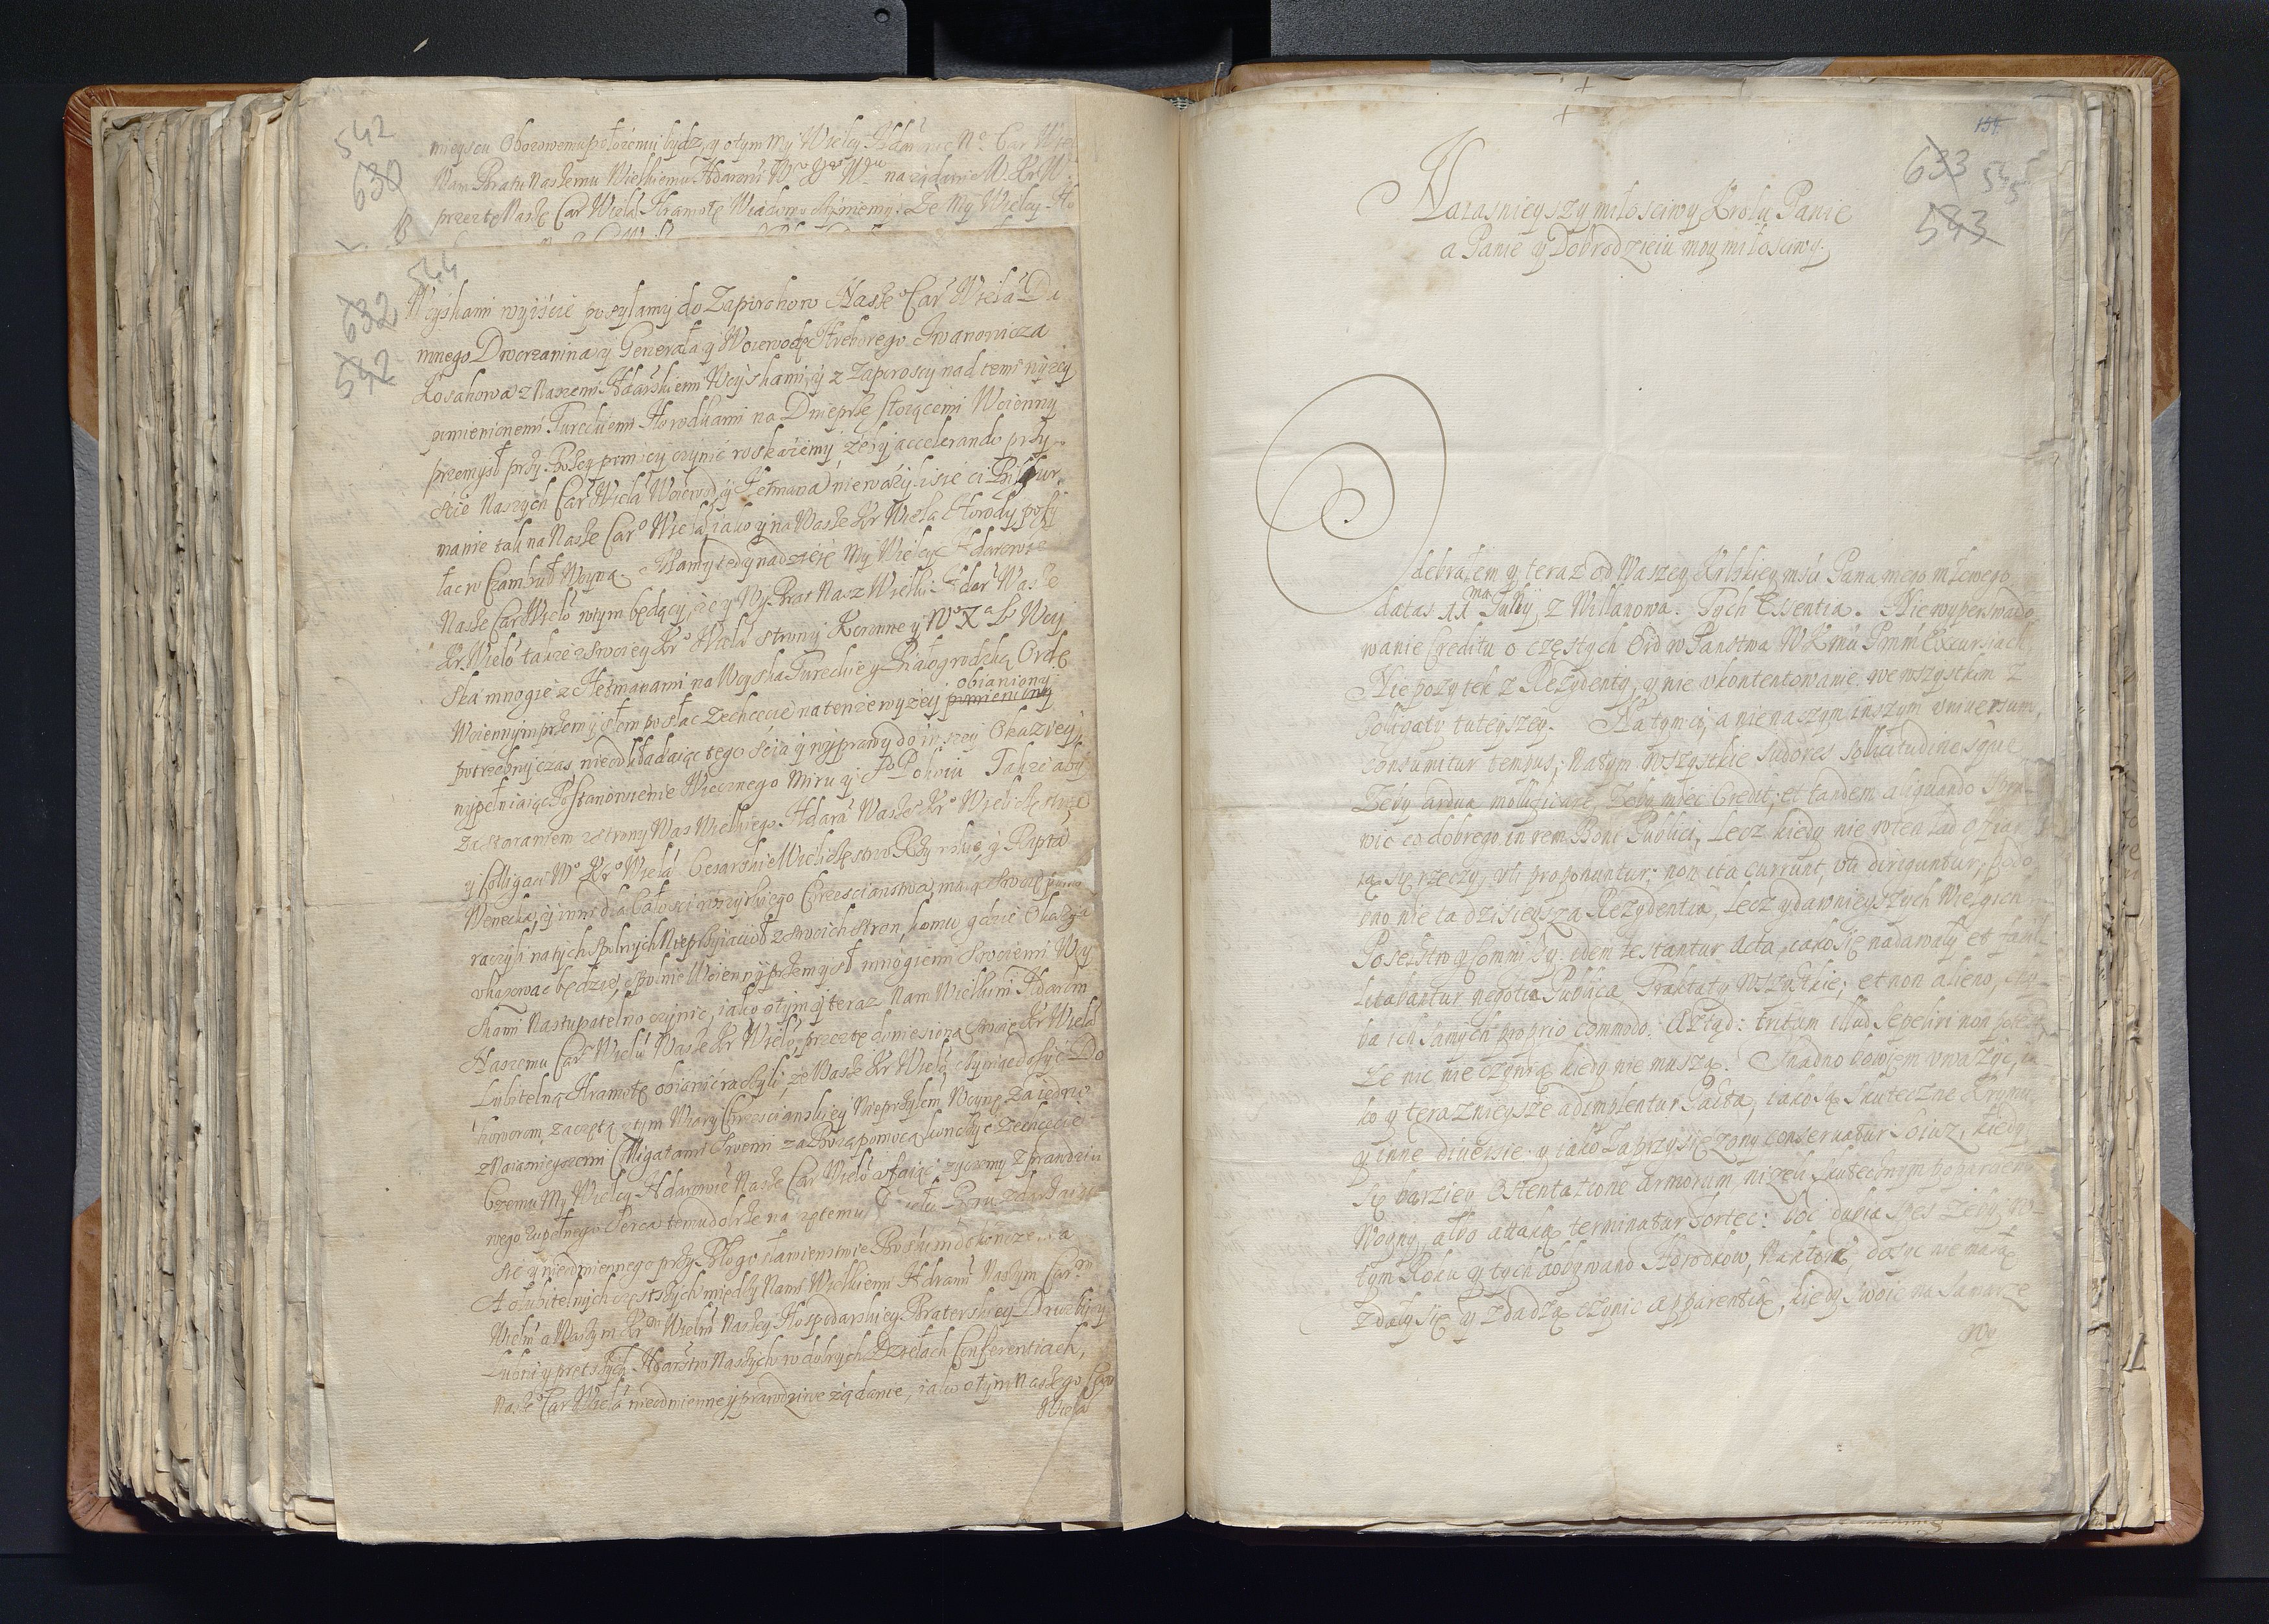 542
630
mieyscu Obozowemu położému bydz, y otym My Wielcy Hdarowie Ne Car Wie
Wam Bratu Naszemu Wielkiemu Hdarowi na ządanie W. Kr W.
przez tę Naszę Car Wielá Hramotę Wiadomo My Wielcy Ho
544
632
542
Woyskami wyiście posyłamy do Zaporohow Nasze Car Wielá Du
mnego Dworzanina y Generała y Woiewodę Hrehorego Iwanowicza
Kosahowa z Naszemi Hdarskiemi Woyskami, y z Zaporoscy nad temi wyżey
pomienionemi Tureckiemi Horodkami na Dnieprze stoiącemi Woienny
przemysł przy Bożey pomocy czynić roskażemy, żeby accelerando przy
ście Naszych Car Wielá Woiewod y Hetmana nieważyli sie ci Bisur
manie tak na Nasze Car Wielá, iako y na Wasze Kr Wiela Horody posy
łac w Czambuł Woyną. Mamy tedy nadzieię My Wielcy Hdarowie
Nasze Car Wielo wtym będący, że y Wy Brat Nasz Wielki Hdar Wasze
Kr. Wielo także z swoiey Kr Wielá strony Koronne y W X L Woy
ska mnogie z Hetmanami na Woyska Tureckie y Białogrodzką Ordę
obianiony
Woiennym przemysłem posłac zechcecie na tenże wyżey pomieniony
potrzebny czas, nieodkładaiąc tego ścia y wyprawy do inszey Okazyey,
wypełniaiąc Postanowienie Wiecznego Miru y Pokoiu. Także aby
za staraniem z strony Was Wielkiego Hdara Wasze Kr Wieliczęstwo
y Colligaci W Kr Wielá Cesarskie Wieliczęstwo Rzymskie, y Rzpta
Wenecka, y inni dla całości wszytkiego Chrzescianstwa,
raczyli na tych spolnych Nieprzyiacioł z swoich stron, komu gdzie Okazya
ukazowac będzie, spolnie Woienny przemysł mnogiemi swoiemi Woy
skami Nastupatelno czynic, iako o tym y teraz Nam Wielkim Hdarom
Naszemu Car Wielu Wasze Kr Wielo, przez tę doniesioną swoię Kr Wielá
Lubitelną Hramotę obianić raczyli, że Wasze Kr Wielo, czyniąc dosyć Do
howorom, zaczętą z tym Wiary Chrzescianskiey Nieprzylem Woynę za iedno
z Naiasnieyszemi Colligatami Swemi za Bożą pomocą konczyć zechcecie
Czemu My Wielcy Hdarowie Nasze Car Wielo ufaiąc życzemy z prawdzi
wego zupełnego Serca temu dobrze
sie y nieodmiennego przy Błogosławienstwie Boskim dokończenia
A o lubitelnych częstszych między Nami Wielkiemi Hdrami Naszym Car
Wielm a Waszym Kr Wielm Naszey Hospodarskiey Braterskiey Druzby y
Lubwi y prętszych Hdarstw Naszych w dobrych Dziełach Conferentiach,
Nasze Car Wielá nieodmienne y prawdziwe żądanie, iako o tym Naszego Car
Wielá
154.
633 545
543
Naiasnieyszy miłosciwy Krolu Panie
a Panie y Dobrodzieiu moy miłosciwy.
Odebrałem y teraz od Waszey Krlskiey msci Pana mego młciwego
datas 11 ma Julij z Willanowa. Tych Essentia. Niewyperswado
wanie Creditu o częstych Ord w Panstwa W K mci Excursiach,
Niepozytek z Rezydenty, y nie ukontentowanie wewszystkim z
Colligaty tuteyszey. Na tymci, a nienaszym inszym uniuersum,
Consumitur tempus; Natym wszystkie sudores sollicitudinesque
Zeby ardua mollificare, Zeby miec Credit; et tandem aliquando spra
wic co dobrego in rem Boni Publici, Lecz kiedy nie w ten Lad
ią się rzeczy, uti proponuntur; non ita currunt, uti diriguntur; podo
bno nie ta dzisieysza Rezydentia, Lecz y dawnieyszych Wielgich
Poselstw y Commissy. idem testantur Acta, iako się nadawały et facil
litabantur negotia Publica, Traktaty Wszytkie; et non alieno, chy
ba ich samych proprio commodo. Aztąd: tritum illud sepeliri non potest,
Ze nic nie czynią kiedy nie muszą. Snadno bowiem uwazyć, ia
ko y teraznieysze adimplentur Pacta, iako są skuteczne Krymu,
y inne diuersie y iako Zaprzysięzony conseruatur Soiusz, kiedy
się barziey Ostentatione Armorum, nizeli skutecznym poparciem
Woyny, albo attaką terminatur Fortec: boć dubia spes Zeby w
tym Roku y tych dobywano Horodkow, Naktore, dosyc nie małą
zdały się y zdadzą czynic apparentią, kiedy swoie na Samarze
Wy